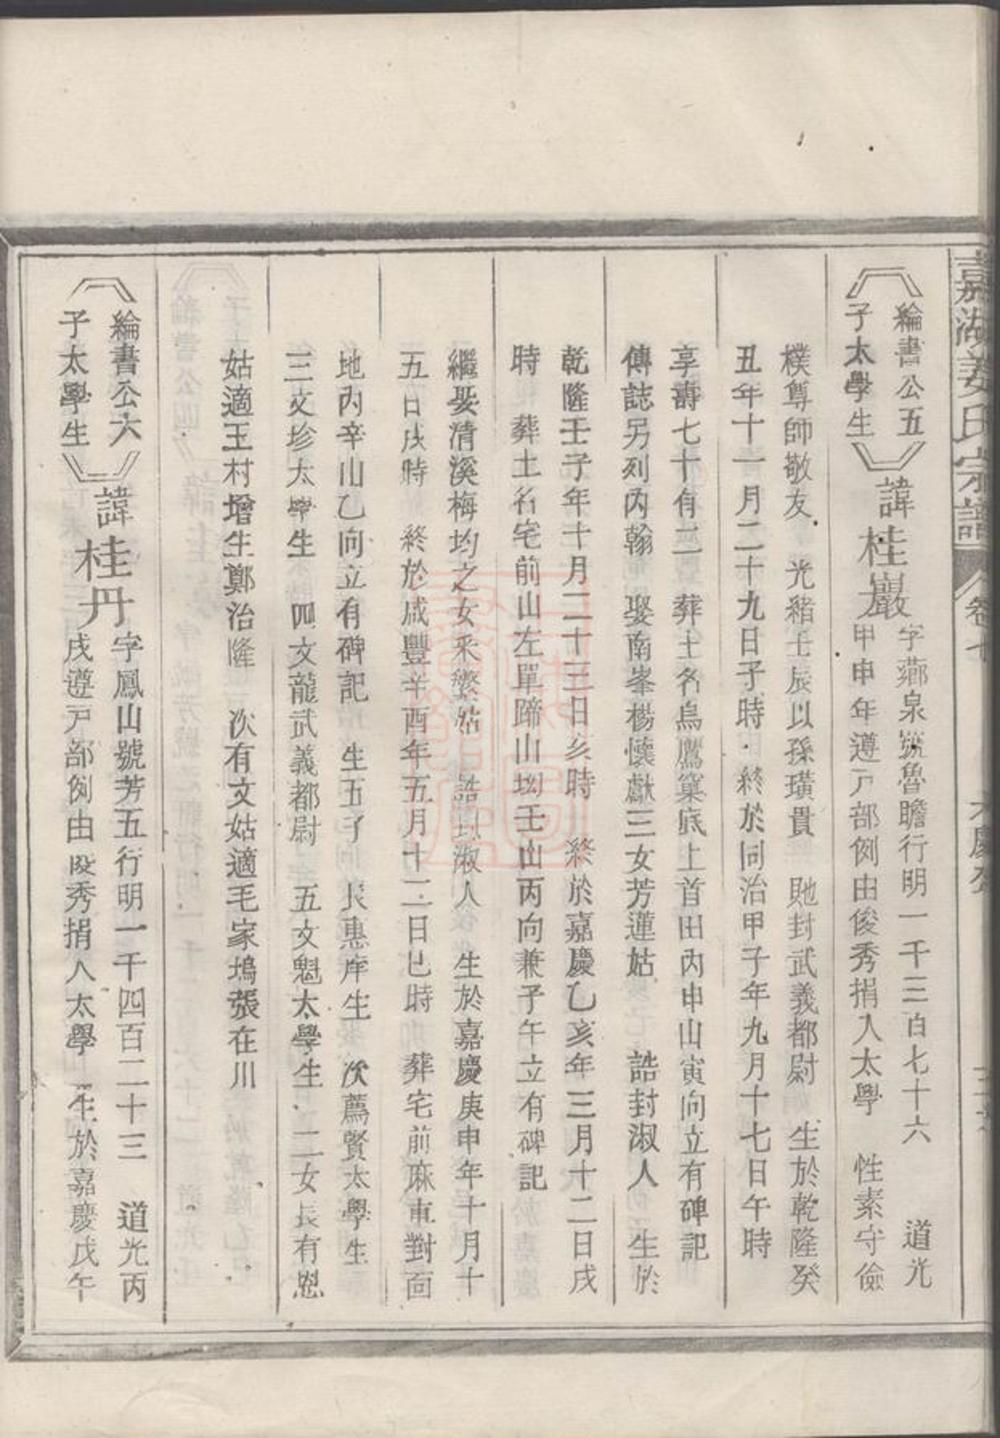 嘉湖姜氏宗譜 卷七
綸書公五
子太學生
諱桂巖
字薌泉號魯瞻行明一千三百七十六 道光
甲申年遵戶部例由俊秀捐入太學 性素守儉
樸尊師敬友 光緒壬辰以孫璜貴 貤封武義都尉 生於乾隆癸
丑年十一月二十九日子時 終於同治甲子年九月十七日午時
享壽七十有二 葬土名烏鷹窠底上首田內申山寅向立有碑記
傳誌另列內翰 娶南峯楊懷獻三女芳蓮姑 誥封淑人 生於
乾隆壬子年十月二十三日亥時 終於嘉慶乙亥年三月十二日戌
時 葬土名宅前山左單蹄山坳壬山丙向兼子午立有碑記
繼娶清溪梅均之女釆蘩姑 誥封淑人 生於嘉慶庚申年十月十
五日戌時 終於咸豐辛酉年五月十二日巳時 葬宅前麻車對面
地內辛山乙向立有碑記 生五子 長惠庠生 次薦賢太學生
三文珍太學生 四文龍武義都尉 五文魁太學生 二女長有恩
姑適王村增生鄭治隆 次有文姑適毛家塢張在川
綸書公六
子太學生
諱桂丹
字鳳山號芳五行明一千四百二十三 道光丙
戌遵戶部例由俊秀捐入太學 生於嘉慶戊午